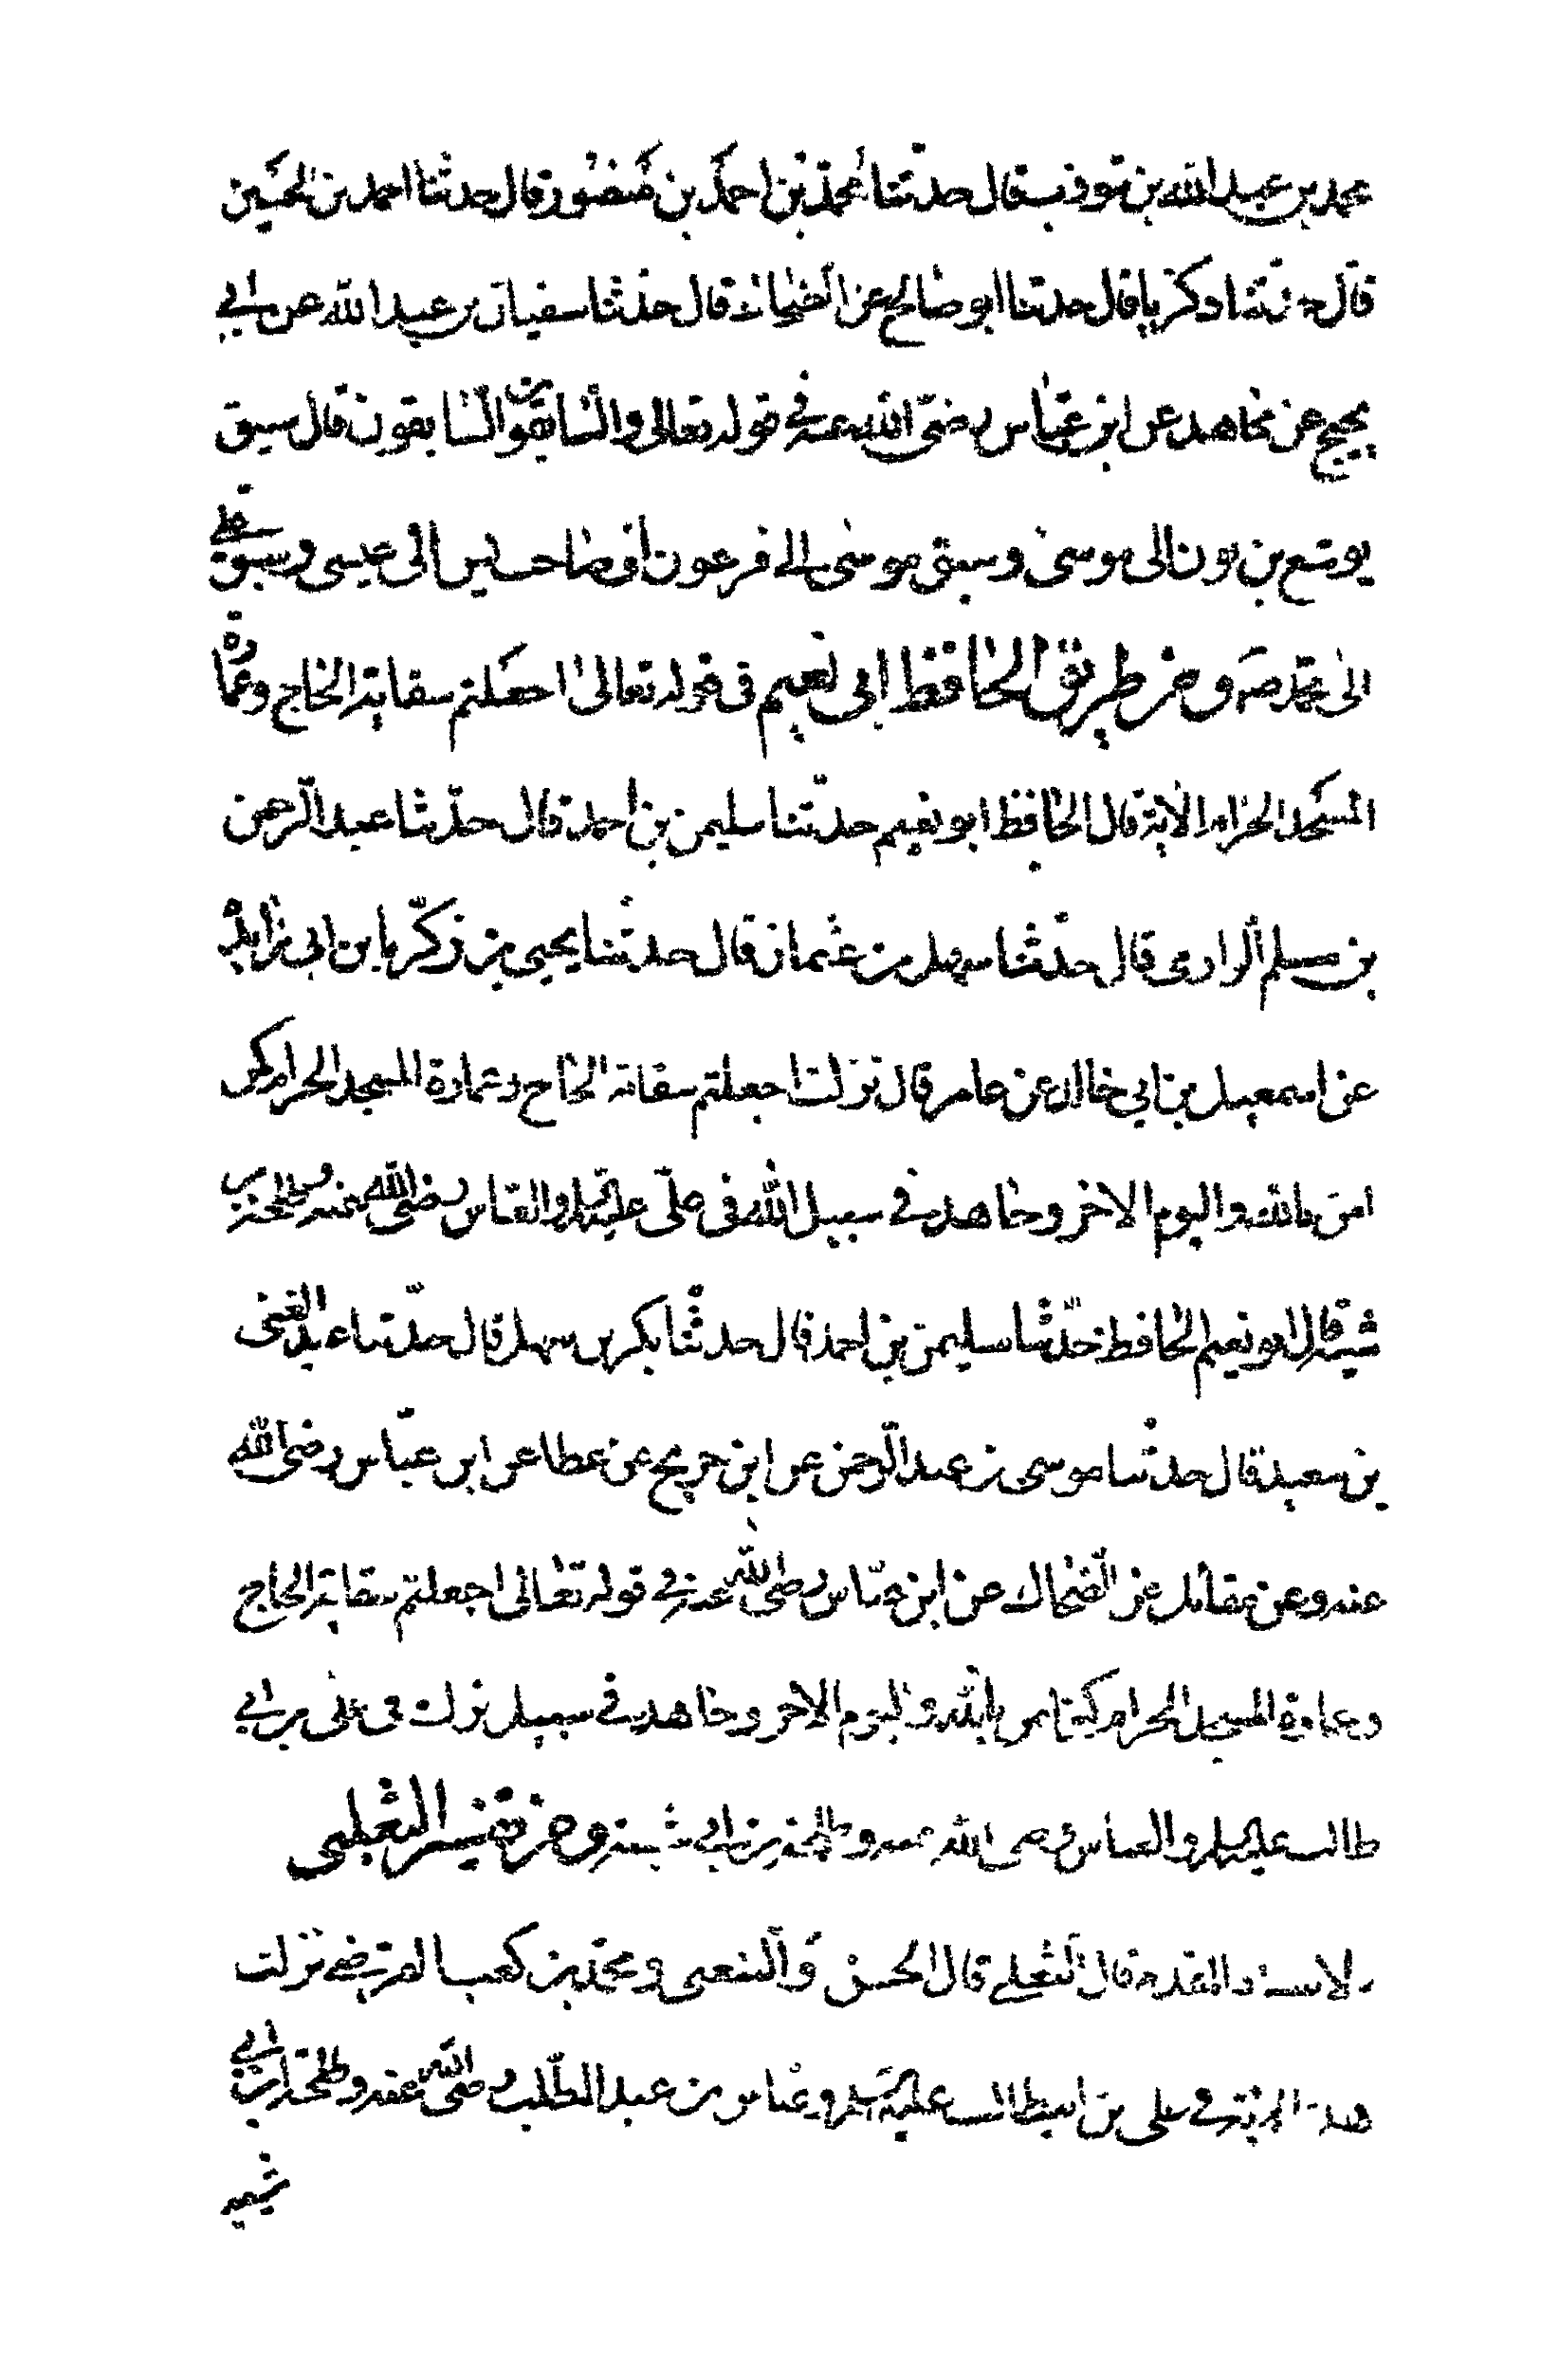 محمد بن عبد الله بن توفيق قال حدثنا محمد بن احمد بن منصور قال حدثنا احمد بن الحسين
قال حدثنا زكريا قال حدثنا ابو صالح عن الضحاك قال حدثنا سفيان بن عبد الله عن ابي
نجيح عن مجاهد عن ابن عباس رضى الله عنه في قوله تعالى والسابقون السابقون قال سبق
يوشع بن نون الى موسى وسبق موسى الى فرعون وصاحب يس الى عيسى وسبق علي
الى محمد صه ومن طريق الحافظ ابى نعيم فى قوله تعالى اجعلتم سقاية الحاج وعمارة
المسجد الحرام الاية قال الحافظ ابو نعيم حدثنا سليمن بن احمد قال حدثنا عبد الرحمن
بن مسلم الرازى قال حدثنا سهل بن عثمان قال حدثنا يحيى بن زكريا بن ابى زايدة
عن اسمعيل بن ابي خالد عن عامر قال نزلت اجعلتم سقاية الحاج وعمارة المسجد الحرام كمن
امن بالله واليوم الاخر وجاهد في سبيل الله فى على عليه السلم والعباس رضى الله عنه وطلحة بن
شيبة قال ابو نعيم الحافظ حدثنا سليمن بن احمد قال حدثنا بكر بن سهل قال حدثنا عبد الغنى
بن سعيد قال حدثنا موسى بن عبد الرحمن عن ابن جريح عن عطا عن ابن عباس رضى الله
عنه وعن مقاتل عن الضحاك عن ابن عباس رضى الله عنه في قوله تعالى اجعلتم سقاية الحاج
وعمارة المسجد الحرام كمن امن بالله واليوم الاخر وجاهد في سبيل نزلت فى على بن ابي
طالب عليه السلم والعباس رضى الله عنه وطلحة بن ابي شيبة ومن تفسير الثعلبى
بالاسناد المقدم قال الثعلبي قال الحسن والشعبى ومحمد بن كعب القرضي نزلت
هذه الاية في على بن ابيطالب عليه السلم وعباس بن عبد المطلب رضى الله عنه وطلحة بن ابي
شيبه